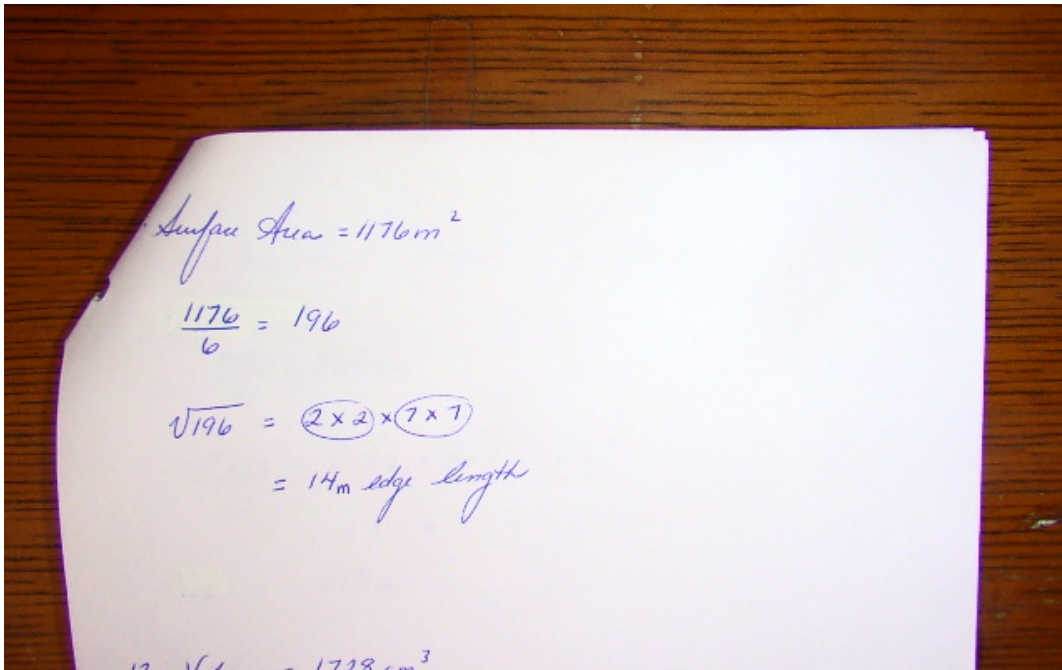 Surface Area = 1176m²
1176/6 = 196
√196 = 2 x 2 x 7 x 7
= 14m edge length
= 1728 cm³